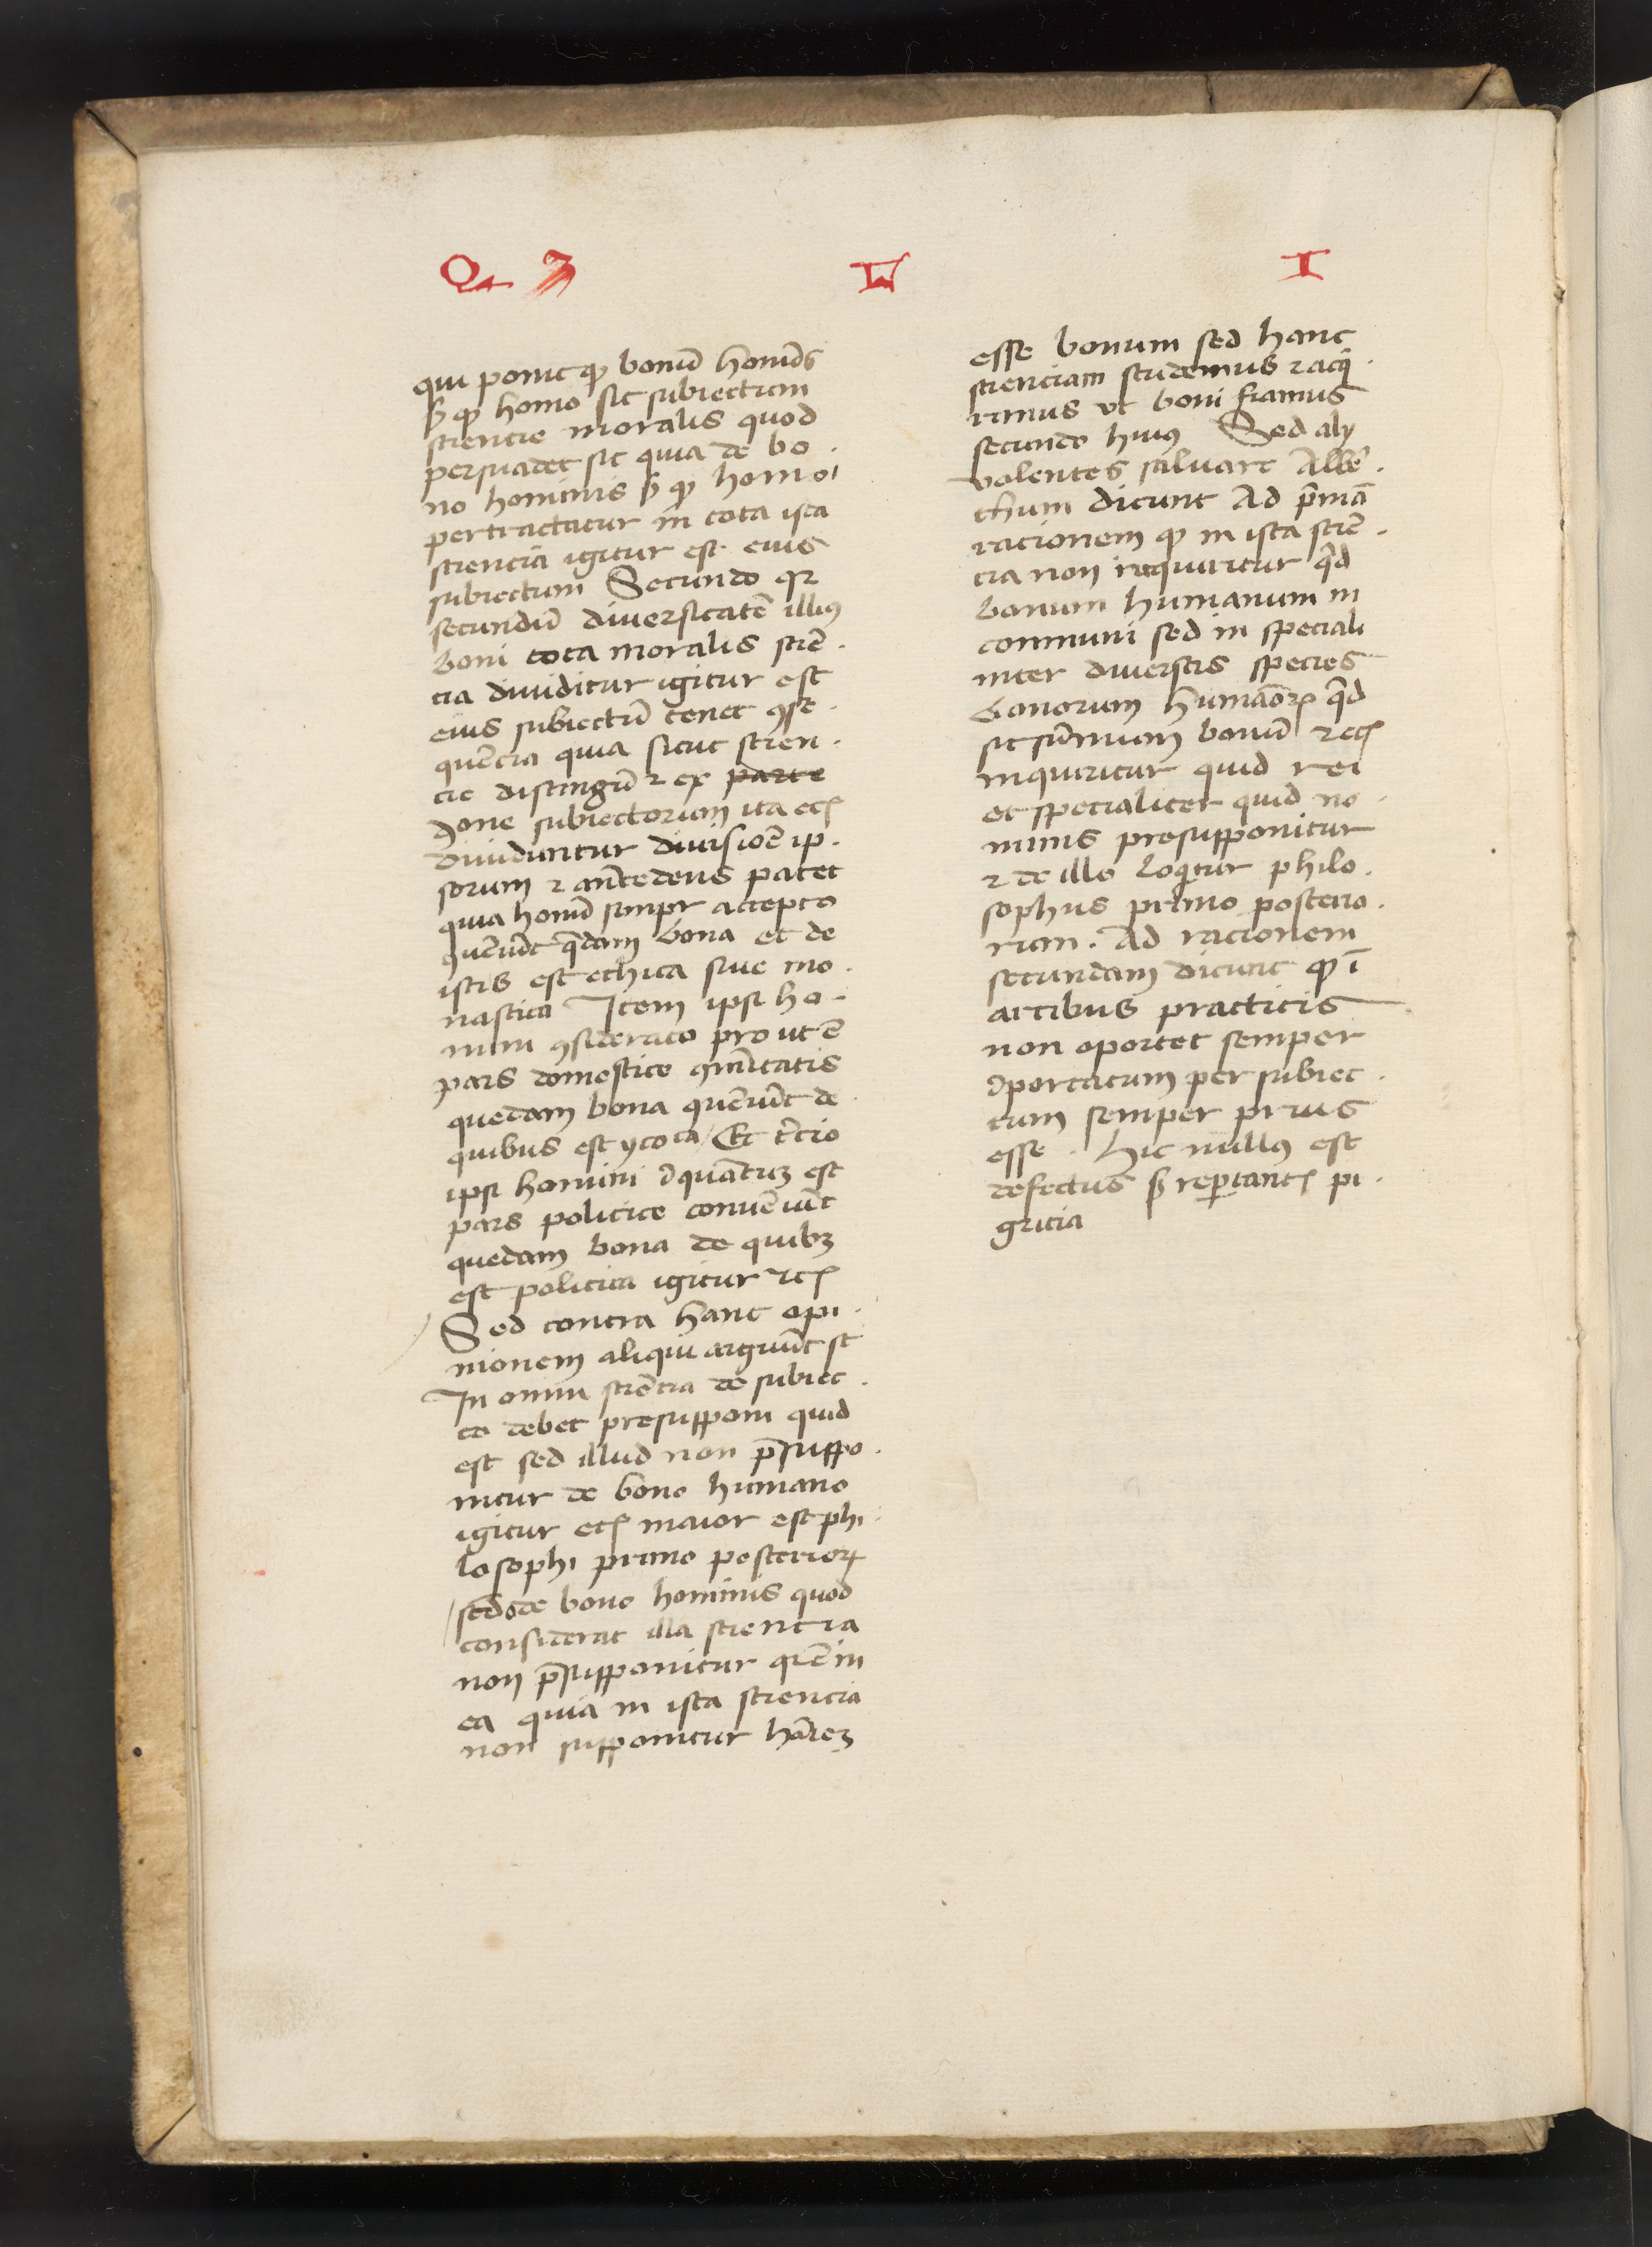 Qᷓ 3 L I
qui ponit ꝙ bonū homīs
ẜ ꝙ homo sit subiectum
sciencie moralis quod
persuadet sic quia de bo
no hominis ẜ ꝙ homo
pertractatur in tota ista
sciencia igitur est eius
subiectum Secundo qꝛ
secundū diuersitatē illiꝰ
boni tota moralis sciē
cia diuiditur igitur est
eius subiectū tenet ꝯse
quēcia quia sicut scien
cie distingūt ex parte
one subiectorum ita ecꝭ
diuiduntur diuisiōe ip
sorum ⁊ antecedens patet
quia homī simpꝉr accepto
ꝯueniūt q̄dam bona et de
istis est ethica siue mo
nastica Item ipsi ho
mini ꝯsiderato prout ē
pars domestice ꝯmūitatis
quedam bona ꝯueniūt de
quibus est ycoca Et tercio
ipsi homini inquātum est
pars politice conueniūt
quedam bona de quibꝫ
est politica igitur ⁊cꝭ
Sed contra hanc opi
nionem aliqui arguūt sic
In omni sciēcia de subiec
to debet presupponi quid
est sed illud non p̄suppo
nitur de bono humano
igitur ecꝭ maior est phi
losophi primo posterioꝝ
sed de bono hominis quod
considerat illa sciencia
non p̄supponitur
ea quia in ista sciencia
non supponitur
esse bonum sed hanc
scienciam studemus ⁊ acq̇
rimus vt boni fiamus
secundo huiꝰ Sed alij
volentes saluare Albe
thum dicunt Ad p̄mā
racionem ꝙ in ista sciē
cia non inquiritur q̇d
bonum humanum in
communi sed in speciali
inter diuersas species
bonorum humāoꝝ q̇d
sit sūmum bonū ⁊ecꝭ
inquiritur quid rei
et specialiter quid no
minis presupponitur
⁊ de illo loq̇tur philo
sophus primo posterio
rum . Ad racionem
secundam dicunt ꝙ ī
artibus practicis
non oportet semper
importatum per subiec
tum semper prius
esse . Hic nullꝰ est
defectus ẜ reportantꝭ pi
gricia